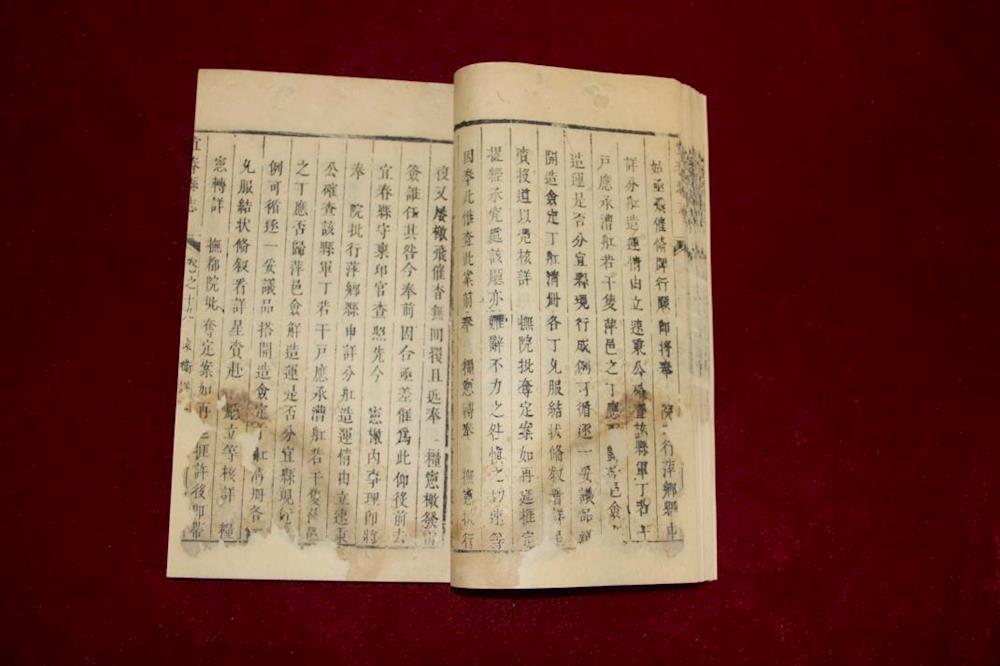 始亟飛催脩牌行縣即將奉 院 行萍鄉鄉申
詳分舡造運情由立速秉公確查該縣軍丁若干
戶應承漕舡若干隻萍邑之丁應 邑僉
造運是否分宜縣現行成例可循逐一妥議品
開造僉定丁舡清冊各丁允服結狀脩叙看詳星
賫投道以憑核詳 撫院批奪定案如再遲捱定
提經承究處該廳亦難辭不力之咎慎之切速等
因奉此惟查此案前奉 糧憲轉奉 撫憲批行
役又屡檄飛催杳無間覆且近奉 糧憲檄發
簽誰任其咎今奉前因合亟差催為此仰役前去
宜春縣守禀印官查照先今 憲檄内事理即將
奉 院批行萍鄉縣申詳分舡造運情由立速秉
公確查該縣軍丁若干戶應承漕舡若干隻萍邑
之丁應否歸萍邑僉解造運是否分宜縣現行
例可循逐一妥議品搭開造僉定丁舡清冊各丁
允服結狀脩叙看詳星賫赴 廳立等核詳 糧
憲轉詳 撫都院批奪定案如再遲捱許役即帶
宜春縣志 卷之十